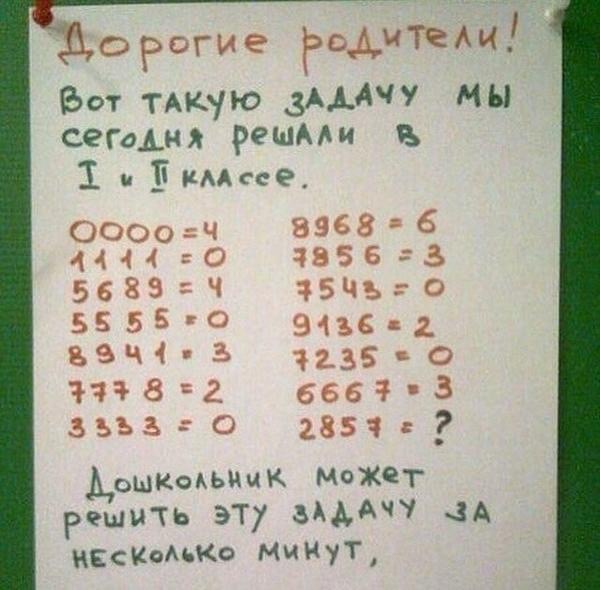 Дорогие родители!
Вот такую задачу мы
сегодня решали в
I и II классе.
0000=4
1111=0
5689=4
5555=0
8941=3
7778=2
3333=0
8968=6
7856=3
7543=0
9136=2
7235=0
6667=3
2857=?
Дошкольник может
решить эту задачу за
несколько минут,